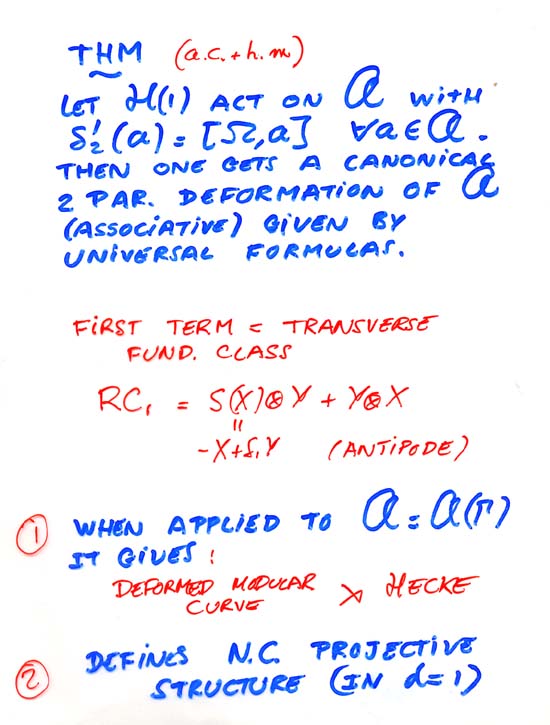 THM (a.c. + h. m)
LET ℋ(1) ACT ON 𝒜 WITH
δ₂'(a) = [Ω, a] ∀a ∈ 𝒜.
THEN ONE GETS A CANONICAL
2 PAR. DEFORMATION OF 𝒜
(ASSOCIATIVE) GIVEN BY
UNIVERSAL FORMULAS.
FIRST TERM = TRANSVERSE
FUND. CLASS
RC₁ = S(X)⊗Y + Y⊗X
"
-X+δ₁Y (ANTIPODE)
① WHEN APPLIED TO 𝒜 = 𝒜(Γ)
IT GIVES :
DEFORMED MODULAR ⋊ HECKE
CURVE
② DEFINES N.C. PROJECTIVE
STRUCTURE (IN d=1)